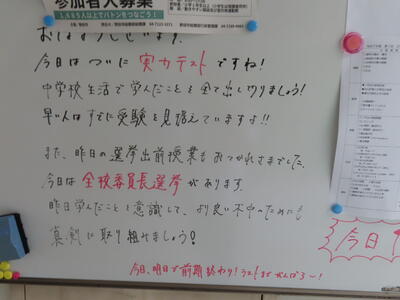 参加者大募集
1,885人以上でバトンをつなごう!
おはようございます。
今日はついに実力テストですね!
中学校生活で学んだことを全て出し切りましょう!
早い人はすでに受験を見据えていますよ!!
また、昨日の選挙出前授業もおつかれさまでした。
今日は全校委員長選挙があります。
昨日学んだことを意識して、より良い
中のためにも
真剣に取り組みましょう!
今日、明日で前期終わり!ラストまでがんばろ〜!
今日